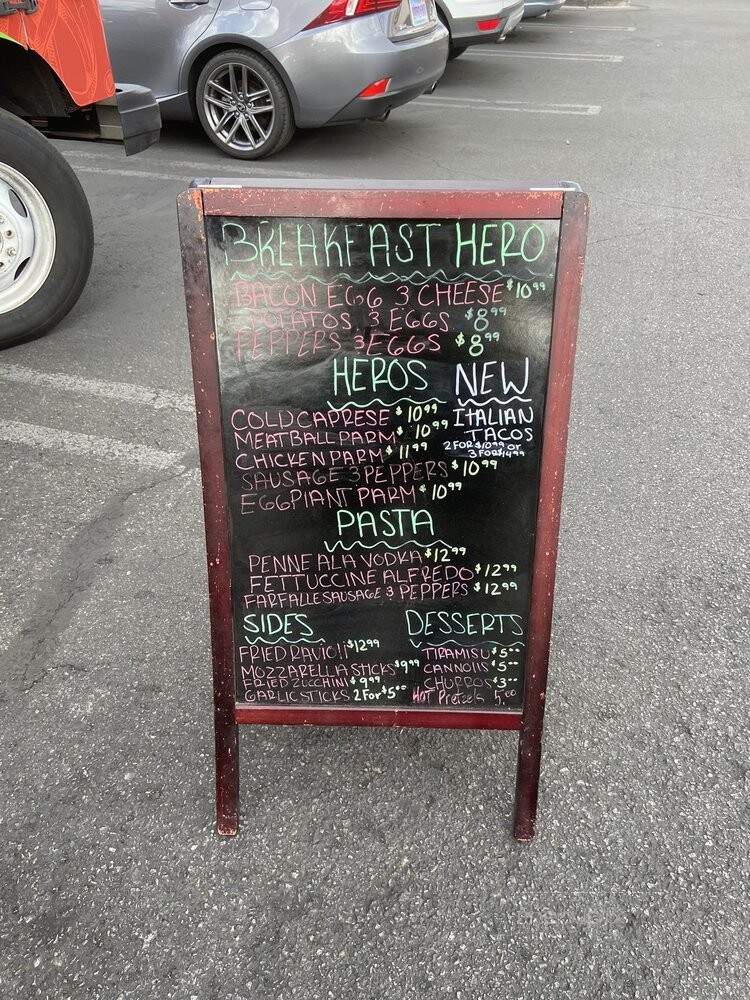 BREAKFAST HERO
BACON EGG 3 CHEESE $10.99
POTATOS 3 EGGS $8.99
PEPPERS 3 EGGS $8.99
HEROS
COLD CAPRESE $10.99
MEATBALL PARM $10.99
CHICKEN PARM $11.99
SAUSAGE 3 PEPPERS $10.99
EGGPlANT PARM $10.99
NEW
ITALIAN
TACOS
2 FOR $10.99 or
3 FOR $14.99
PASTA
PENNE ALA VODKA $12.99
FETTUCCINE ALFREDO $12.99
FARFALLE SAUSAGE 3 PEPPERS $12.99
SIDES
FRIED RAVIOli $12.99
MOZZARELLA STICKS $9.99
FRIED ZUCCHINI $9.99
GARLIC STICKS 2 For $5.00
DESSERTS
TIRAMISU $5.00
CANNOlIS $5.00
CHURROS $3.00
HOT Pretzels 5.00